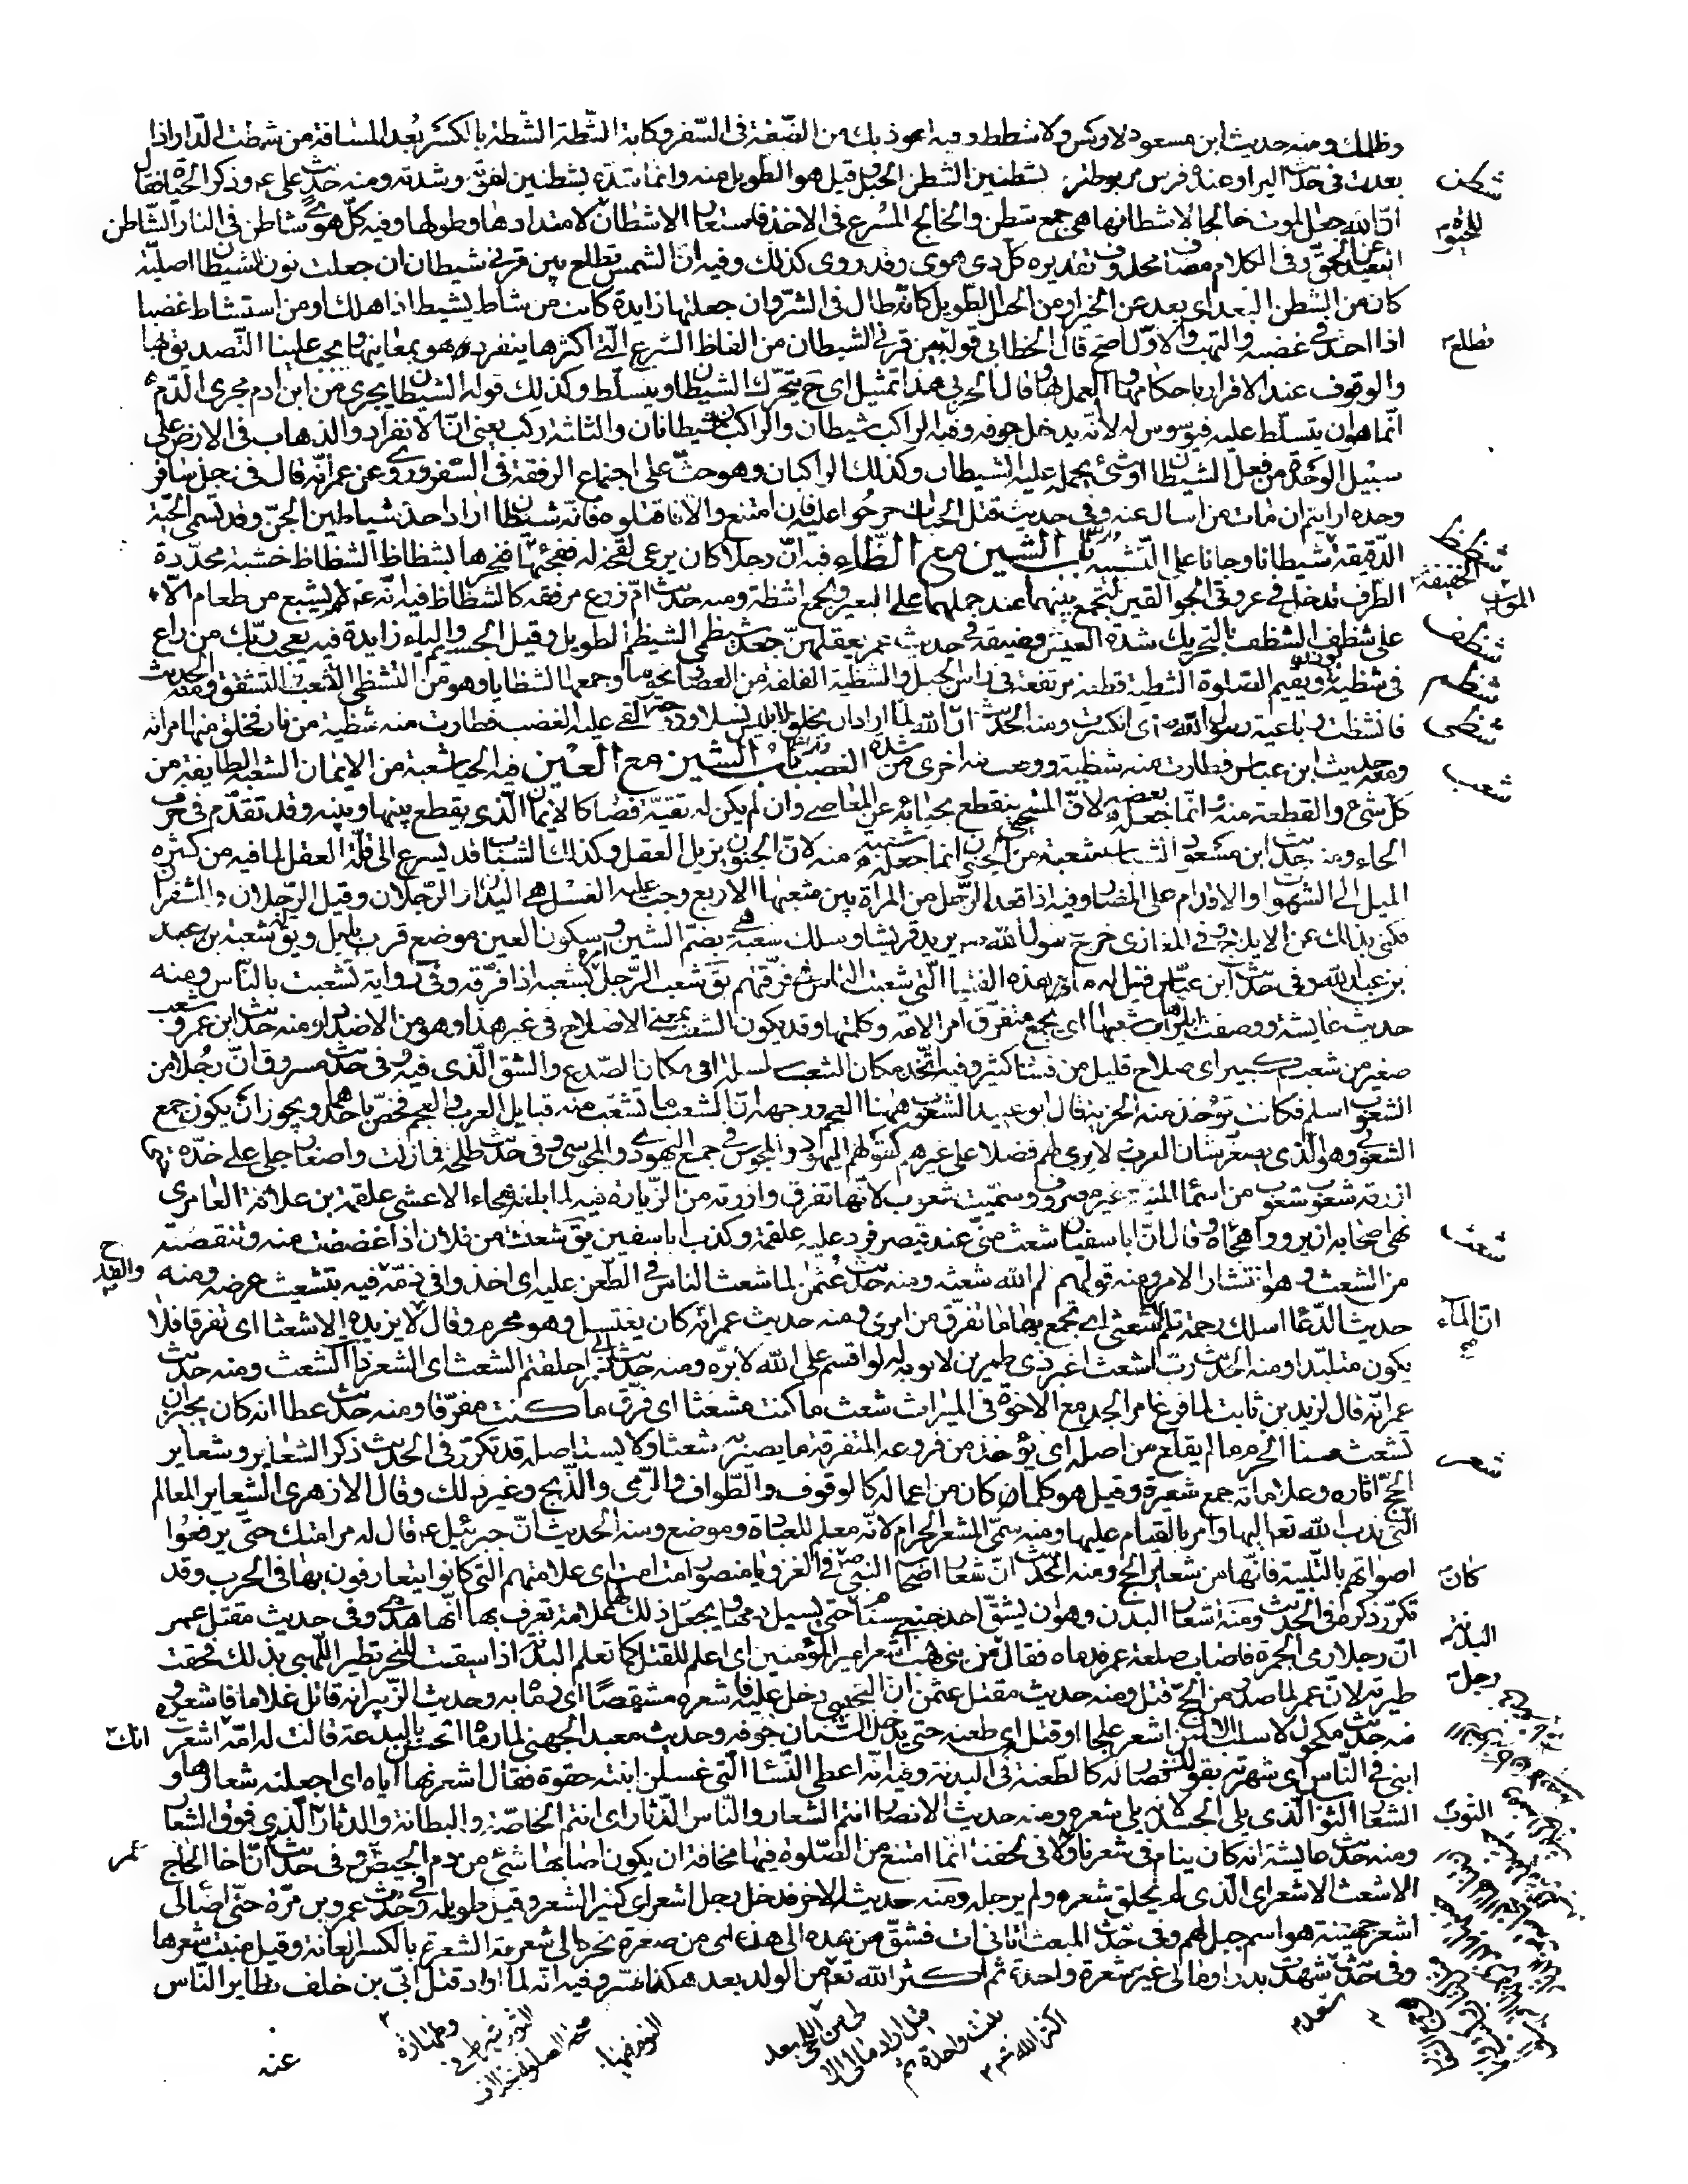 وظلمك ومنه حديث ابن مسعود لا وكس ولا شطط وفيه اعوذ بك من الضبنة فى السفر وكابة الشطة الشطة بالكسر بُعد المسافة من شطت الدار اذا
بعدت فى حديث البراء وعنده فرس مربوطة بشطنين الشطن الحبل وقيل هو الطويل منه وانما شده بشطنين لقوته وشدته ومنه حديث على ع وذكر الحيوة فقال
ان الله جعل الموت خالجا لاشطانها هى جمع شطن والخالج المسرع فى الاخذ فاستعار الاشطان لامتدادها وطولها وفيه كل هوى شاطن فى النار الشاطن
البعيد عن الحق وفى الكلام مضاف محذوف تقديره كل ذى هوى وقد روى كذلك وفيه ان الشمس تطلع بين قرنى شيطان ان جعلت نون الشيطان اصلية
كان من الشطن البعد اى بعد عن الخير او من الحبل الطويل كانه طال فى الشر وان جعلتها زايدة كانت من شاط يشيط اذا هلك او من استشاط غضبا
اذا احتد فى غضبه والتهب والاول اصح قال الخطابى قوله بين قرنى الشيطان من الفاظ الشرع التى اكثرها ينفرد هو بمعانيها ويجب علينا التصديق بها
والوقوف عند الاقرار باحكامها والعمل بها وقال الحربى هذا تمثيل اى ح يتحرك الشيطان ويتسلط وكذلك قوله الشيطان يجرى من ابن ادم مجرى الدم
انما هو ان يتسلط عليه فيوسوس له لا انه يدخل جوفه وفيه الراكب شيطان والراكبان شيطانان والثلثة ركب يعنى ان الانفراد والذهاب فى الارض على
سبيل الوحدة من فعل الشيطان او شئ يحمله عليه الشيطان وكذلك الراكبان وهو حث على اجتماع الرفقة فى السفر وروى عن عمر انه قال فى رجل سافر
وحده ارايتم ان مات من اسال عنه وفى حديث قتل الحيات حرجوا عليه فان امتنع والا فاقتلوه فانه شيطان اراد احد شياطين الجن وقد تسمى الحية
الدقيقة شيطانا وجانا على التشبيه باب الشين مع الظاء فيه ان رجلا كان يرعى لقحة له ففجئها فنحرها بشظاظ الشظاظ خشبة محددة
الطرف تدخل فى عروتى الجوالقين لتجمع بينهما عند حملهما على البعير والجمع اشظة ومنه حديث ام زرع مرفقه كالشظاظ فيه انه ع لم يشبع من طعام الا
على شظف الشظف بالتحريك شدة العيش وضيقه فى حديث عمر يعقلهن جعد شيظمى الشيظم الطويل وقيل الجسيم والياء زايدة فيه يعجب ربك من راع
فى شظية يؤذن ويقيم الصلوة الشظية قطعة مرتفعة فى راس الجبل والشظية الفلقة من العصا ونحوها وجمعها الشظايا وهو من التشظى التشعب التشقق ومنه الحديث
فانشظت رباعية رسول الله ص اى انكسرت ومنه الحديث ان الله لما اراد ان يخلق لابليس نسلا وزوجة القى عليه الغضب فطارت منه شظية من نار فخلق منها امراته
ومنه حديث ابن عباس فطارت منه شظية ووقعت منه اخرى من شدة الغضب باب الشين مع العين فيه الحياء شعبة من الايمان الشعبة الطايفة من
كل شئ والقطعة منه وانما جعله بعضه لان المستحيى ينقطع بحيائه عن المعاصى وان لم يكن له تقية فصار كالايمان الذى يقطع بينها وبينه وقد تقدم فى حرف
الحاء ومنه حديث ابن مسعود الشباب شعبة من الجنون انما جعله شعبة منه لان الجنون يزيل العقل وكذلك الشباب قد يسرع الى قلة العقل لما فيه من كثرة
الميل الى الشهوات والاقدام على المضار وفيه اذا قعد الرجل من المراة بين شعبها الاربع وجب عليه الغسل هى اليدان والرجلان وقيل الرجلان والشفران
فكنى بذلك عن الايلاج وفى المغازى خرج رسول الله ص يريد قريشا وسلك شعبة هى بضم الشين وسكون العين موضع قرب يليل ويق له شعبة بن عبد
بن عبد الله وفى حديث ابن عباس قيل له ما هذه الفتيا التى شعبت الناس اى فرقتهم يق شعب الرجل امره يشعبه اذا فرقه وفى رواية تشعبت بالناس ومنه
حديث عايشة ووصفت اباها يراب شعبها اى يجمع متفرق امر الامة وكلمتها وقد يكون الشعب بمعنى الاصلاح فى غير هذا وهو من الاضداد ومنه حديث ابن عمر وشعب
صغير من شعب كبير اى صلاح قليل من فساد كثير وفيه اتخذ مكان الشعب سلسلة اى مكان الصدع والشق الذى فيه وفى حديث مسروق ان رجلا من
الشعوب اسلم فكانت تؤخذ منه الجزية قال ابو عبيد الشعوب ههنا العجم ووجهه ان الشعب ما تشعب منه قبايل العرب والعجم فخص باحدهما ويجوز ان يكون جمع
الشعوبى وهو الذى يصغر شان العرب ولا يرى لهم فضلا على غيرهم كقولهم اليهود والمجوس فى جمع اليهودى والمجوسى وفى حديث طلحة فما زلت واضعا رجلى على خده حتى
ازرته شعوب شعوب من اسماء المنية غير مصروف وسميت شعوب لانها تفرق وازرته من الزيارة فيه لما بلغه هجاء الاعشى علقمة بن علاثة العامرى
نهى اصحابه ان يرووا هجاءه وقال ان ابا سفيان شعث منى عند قيصر فرد عليه علقمة وكذب ابا سفين يق شعثت من فلان اذا غضضت منه وتنقصته
من الشعث وهو انتشار الامر ومنه قولهم لم الله شعثه ومنه حديث عثمن لما شعث الناس فى الطعن عليه اى اخذوا فى ذمه والقدح فيه بتشعيث عرضه ومنه
حديث الدعاء اسلك رحمة تلم بها شعثى اى تجمع بها ما تفرق من امرى ومنه حديث عمر انه كان يغتسل وهو محرم وقال ان الماء لا يزيده الا شعثا اى تفرقا فلا
يكون متلبدا ومنه الحديث رب اشعث اغبر ذى طمرين لا يوبه له لو اقسم على الله لابره ومنه حديث ابى ذر احلقتم الشعث اى الشعر ذا الشعث ومنه حديث
عمر انه قال لزيد بن ثابت لما فرغ امر الجد مع الاخوة فى الميراث شعث ما كنت مشعثا اى فرق ما كنت مفرقا ومنه حديث عطا انه كان يجيز ان
تشعث سنا الحرم ما لم يقلع من اصله اى يؤخذ من فروعه المتفرقة ما يصير به شعثا ولا يستاصله قد تكرر فى الحديث ذكر الشعاير وشعاير
الحج اثاره وعلاماته جمع شعيرة وقيل هو كلما كان من اعماله كالوقوف والطواف والرمى والذبح وغير ذلك وقال الازهرى الشعاير المعالم
التى ندب الله تعالى اليها وامر بالقيام عليها ومنه سمى المشعر الحرام لانه معلم للعبادة وموضع ومنه الحديث ان جبرئيل ع قال له مر امتك حتى يرفعوا
اصواتهم بالتلبية فانها من شعاير الحج ومنه الحديث ان شعار اصحاب النبى ص كان فى الغزو يا منصور امت امت اى علامتهم التى كانوا يتعارفون بها فى الحرب وقد
تكرر ذكره فى الحديث ومنه اشعار البدن وهو ان يشق احد جنبى سنام البدنة حتى يسيل دمها ويجعل ذلك لها علامة تعرف بها انها هدى وفى حديث مقتل عمر
ان رجلا رمى الجمرة فاصاب صلعة عمر فدماه فقال رجل من بنى لهب اشعر امير المؤمنين اى اعلم للقتل كما تعلم البدنة اذا سيقت للنحر تطير اللهبى بذلك فحقت
طيرته لان عمر لما صدر من الحج قتل ومنه حديث مقتل عثمن ان التجيبى دخل عليه فاشعره مشقصا اى دماه به وحديث الزبير انه قاتل غلاما فاشعره
منه حديث مكحول لا سلب الا لمن اشعر علجا او قتله اى طعنه حتى يدخل السنان جوفه وحديث معبد الجهنى لما رماه الحسن بالبدعة قالت له امه انك اشعرت
ابنى فى الناس اى شهرته بقولك فصار له كالطعنة فى البدنة وفيه انه اعطى النساء التى غسلن ابنته حقوه فقال اشعرنها اياه اى اجعلنه شعارها و
الشعار الثوب الذى يلى الجسد لانه يلى شعره ومنه حديث الانصار انتم الشعار والناس الدثار اى انتم الخاصة والبطانة والدثار الثوب الذى فوق الشعار
ومنه حديث عايشة انه كان ينام فى شعرنا ولا فى لحفنا انما امتنع من الصلوة فيها مخافة ان يكون اصابها شئ من دم الحيض وفى حديث عمر ان اخا الحاج
الاشعث الاشعر اى الذى لم يحلق شعره ولم يرجله ومنه حديثه الاخر فدخل رجل اشعر اى كثير الشعر وقيل طويله وفى حديث عمرو بن مرة حتى اضاء لى
اشعر جهينة هو اسم جبل لهم وفى حديث المبعث اتانى ات فشق من هذه الى هذه اى من صغرة نحره الى شعرته الشعرة بالكسر العانة وقيل منبت شعرها
وفى حديث سعد شهدت بدرا ومالى غير شعرة واحدة ثم اكثر الله تع من الولد بعد هكذا فسر وفيه انه لما اراد قتل ابى بن خلف تطاير الناس
عنه
شطن
للحيوة
تطلع
شظظ
شظف
شظم
شظى
شعب
شعث
ان الماء
شعر
كان
البدنة
رجل
انك
الثوب
عمر